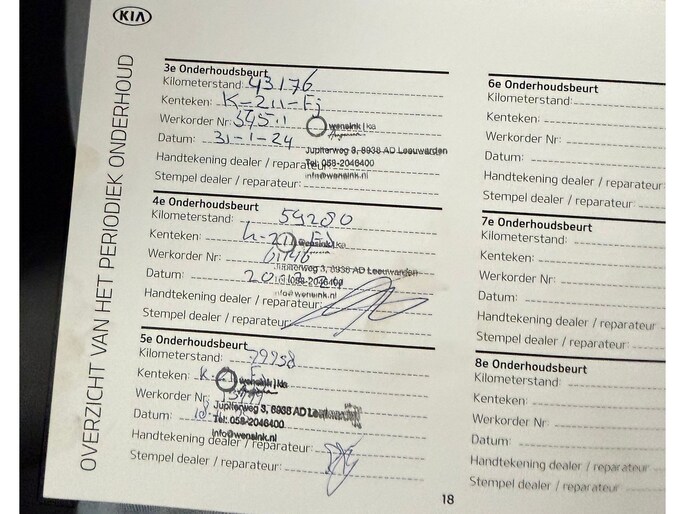 KIA
OVERZICHT VAN HET PERIODIEK ONDERHOUD
3e Onderhoudsbeurt
Kilometerstand: 43176
Kenteken: K-211-Fj
Werkorder Nr: 5451
wensink | kia
Datum: 31-1-24
Jupiterweg 3, 8938 AD Leeuwarden
Handtekening dealer / reparateur:
Tel: 058-2046400
info@wensink.nl
Stempel dealer / reparateur:
4e Onderhoudsbeurt
Kilometerstand: 59280
Kenteken:
wensink | kia
Werkorder Nr:
Jupiterweg 3, 8938 AD Leeuwarden
Datum:
Tel: 058-2046400
info@wensink.nl
Handtekening dealer / reparateur:
Stempel dealer / reparateur:
5e Onderhoudsbeurt
Kilometerstand: 79958
Kenteken:
wensink | kia
Werkorder Nr:
Jupiterweg 3, 8938 AD Leeuwarden
Datum:
Tel: 058-2046400
info@wensink.nl
Handtekening dealer / reparateur:
Stempel dealer / reparateur:
6e Onderhoudsbeurt
Kilometerstand:
Kenteken:
Werkorder Nr:
Datum:
Handtekening dealer / reparateur
Stempel dealer / reparateur:
7e Onderhoudsbeurt
Kilometerstand:
Kenteken:
Werkorder Nr:
Datum:
Handtekening dealer / reparateur
Stempel dealer / reparateur:
8e Onderhoudsbeurt
Kilometerstand:
Kenteken:
Werkorder Nr:
Datum:
Handtekening dealer / reparateur
Stempel dealer / reparateur:
18